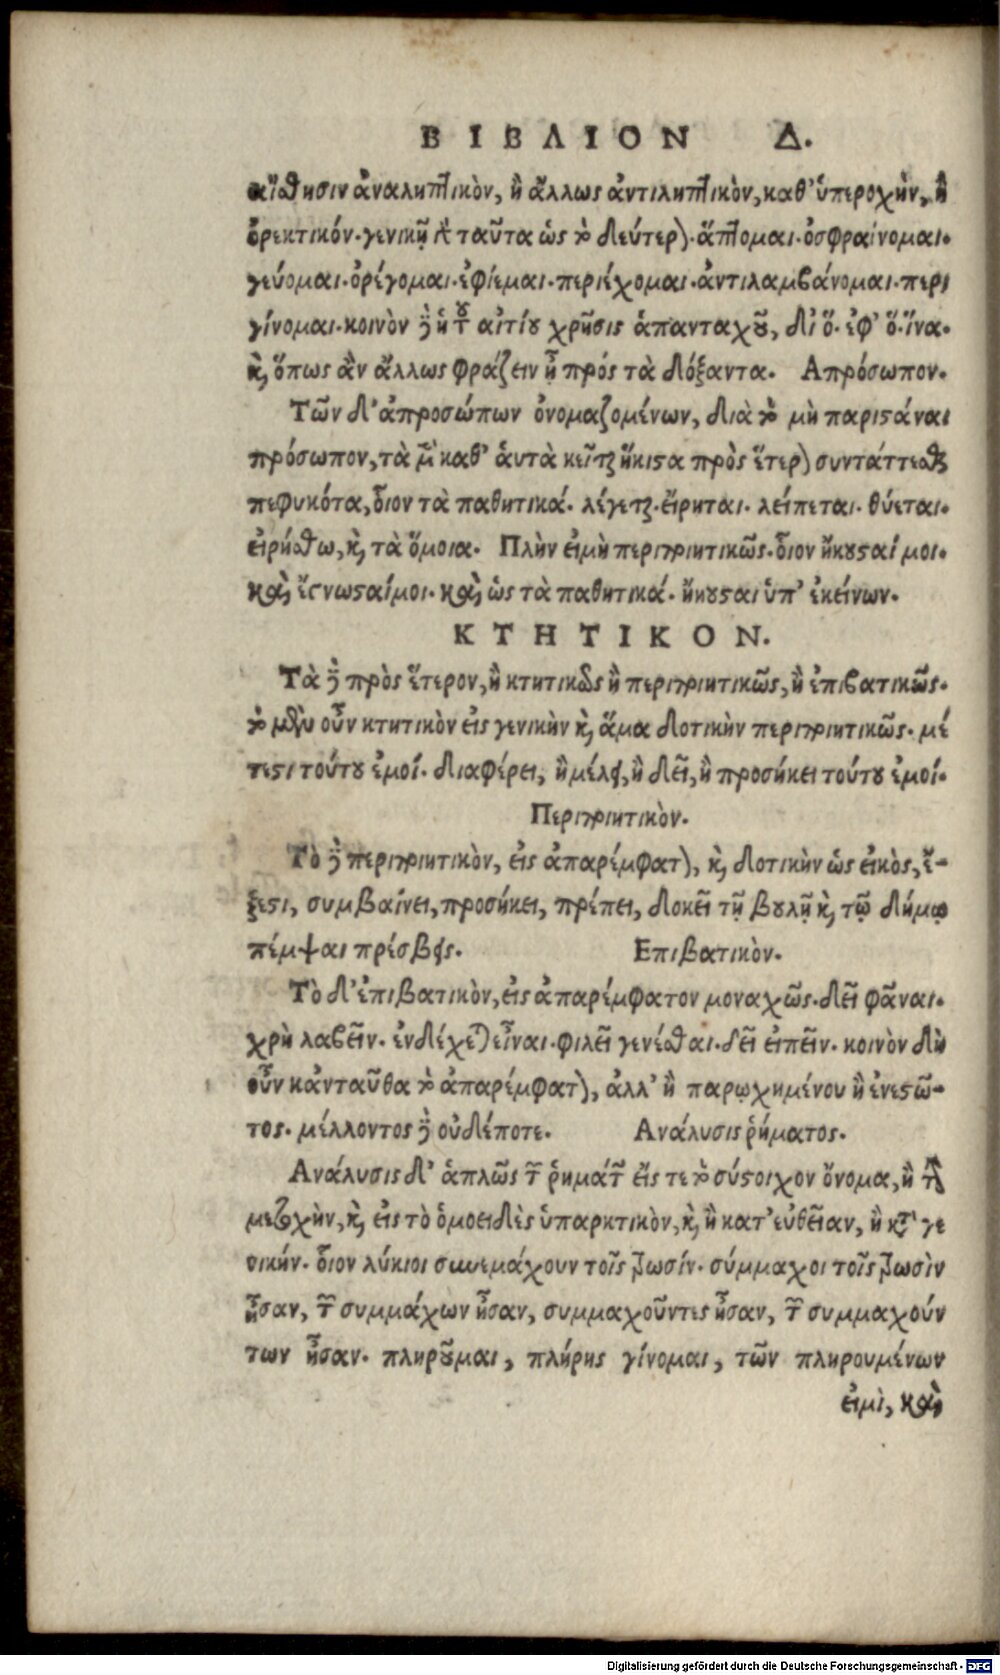 ΒΙΒΛΙΟΝ Δ.
αἴσθησιν ἀναληπτικὸν, ἢ ἄλλως ἀντιληπτικὸν, καθ' ὑπεροχὴν, ἢ
ὀρεκτικόν. γενικῇ καὶ ταῦτα ὡς τὸ δεύτερον. ἅπτομαι. ὀσφραίνομαι.
γεύομαι. ὀρέγομαι. ἐφίεμαι. περιέχομαι. ἀντιλαμβάνομαι. περι
γίνομαι. κοινὸν δὲ ἡ τοῦ αἰτίου χρῆσις ἁπανταχοῦ, δι' ὅ. ἐφ' ὅ. ἵνα.
καὶ, ὅπως ἂν ἄλλως φράζειν ᾖ πρός τὰ δόξαντα. Απρόσωπον.
Τῶν δ' ἀπροσώπων ὀνομαζομένων, διὰ τὸ μὴ παριστάναι
πρόσωπον, τὰ μὲν καθ' ἁυτὰ κεῖται ἥκιστα πρὸς ἕτερον συντάττεσθαι
πεφυκότα, οἷον τὰ παθητικά. λέγεται. εἴρηται. λείπεται. θύεται.
εἰρήσθω, καὶ τὰ ὅμοια. Πλὴν εἰμὴ περιποιητικῶς. οἷον ἤκουσταί μοι.
καὶ ἔγνωσταί μοι. καὶ ὡς τὰ παθητικά. ἤκουσται ὑπ' ἐκείνων.
ΚΤΗΤΙΚΟΝ.
Τὰ δὲ πρὸς ἕτερον, ἢ κτητικῶς ἢ περιποιητικῶς, ἢ ἐπιβατικῶς.
τὸ μὲν οὖν κτητικὸν εἰς γενικὴν καὶ ἅμα δοτικὴν περιποιητικῶς. μέ
τεστι τούτου ἐμοί. διαφέρει, ἢ μέλει, ἢ δεῖ, ἢ προσήκει τούτου ἐμοί.
Περιποιητικὸν.
Τὸ δὲ περιποιητικὸν, εἰς ἀπαρέμφατον, καὶ δοτικὴν ὡς εἰκὸς, ἔ-
ξεστι, συμβαίνει, προσήκει, πρέπει, δοκεῖ τῇ βουλῇ καὶ τῷ δήμῳ
πέμψαι πρέσβεις. Επιβατικὸν.
Τὸ δ' ἐπιβατικὸν, εἰς ἀπαρέμφατον μοναχῶς. δεῖ φᾶναι.
χρὴ λαβεῖν. ἐνδέχεται εἶναι. φιλεῖ γενέσθαι. δεῖ εἰπεῖν. κοινὸν δὴ
οὖν κἀνταῦθα τὸ ἀπαρέμφατον, ἀλλ' ἢ παρῳχημένου ἢ ἐνεστῶ-
τος. μέλλοντος δὲ οὐδέποτε. Ανάλυσις ῥήματος.
Ανάλυσις δ' ἁπλῶς τῶν ῥημάτων εἴς τε τὸ σύστοιχον ὄνομα, ἢ τὴν
μετοχὴν, καὶ εἰς τὸ ὁμοειδὲς ὑπαρκτικὸν, καὶ ἢ κατ' εὐθεῖαν, ἢ κατὰ γε
νικήν. οἷον λύκιοι συνεμάχουν τοῖς τρωσίν. σύμμαχοι τοῖς τρωσὶν
ἦσαν, τῶν συμμάχων ἦσαν, συμμαχοῦντες ἦσαν, τῶν συμμαχούν
των ἦσαν. πληροῦμαι, πλήρης γίνομαι, τῶν πληρουμένων
εἰμὶ, καὶ
Digitalisierung gefördert durch die Deutsche Forschungsgemeinschaft - DFG